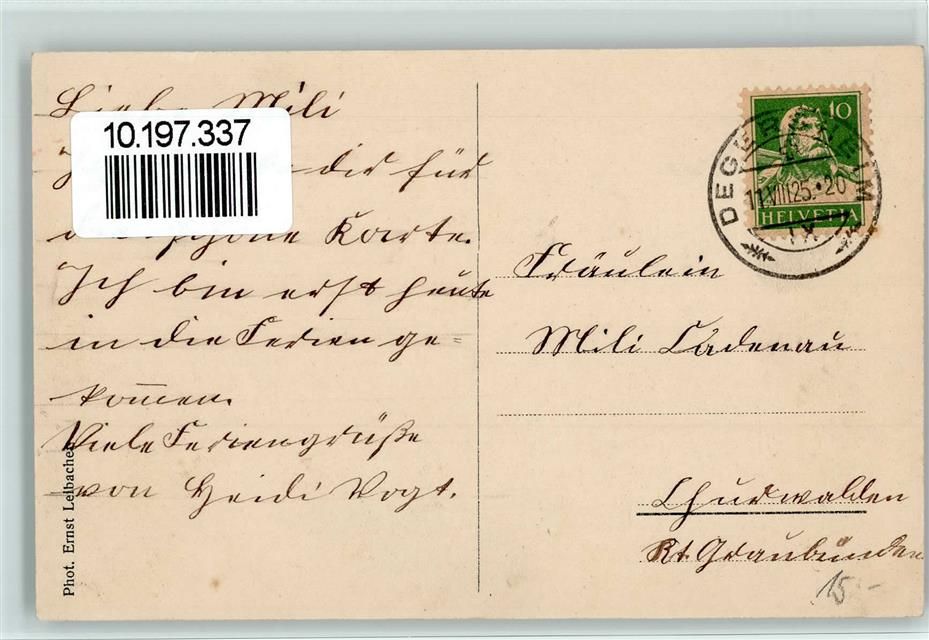 Liebe Mili
10.197.337
dir für
schöne Karte.
Ich bin erst heute
in die Ferien ge=
kommen.
Viele Feriengrüße
von Heidi Vogt.
Phot. Ernst Leibacher
10
HELVETIA
DEGERSHEIM
11.VIII.25.•20
Fräulein
Mili Cadenau
Churwalden
Kt. Graubünden
15.-